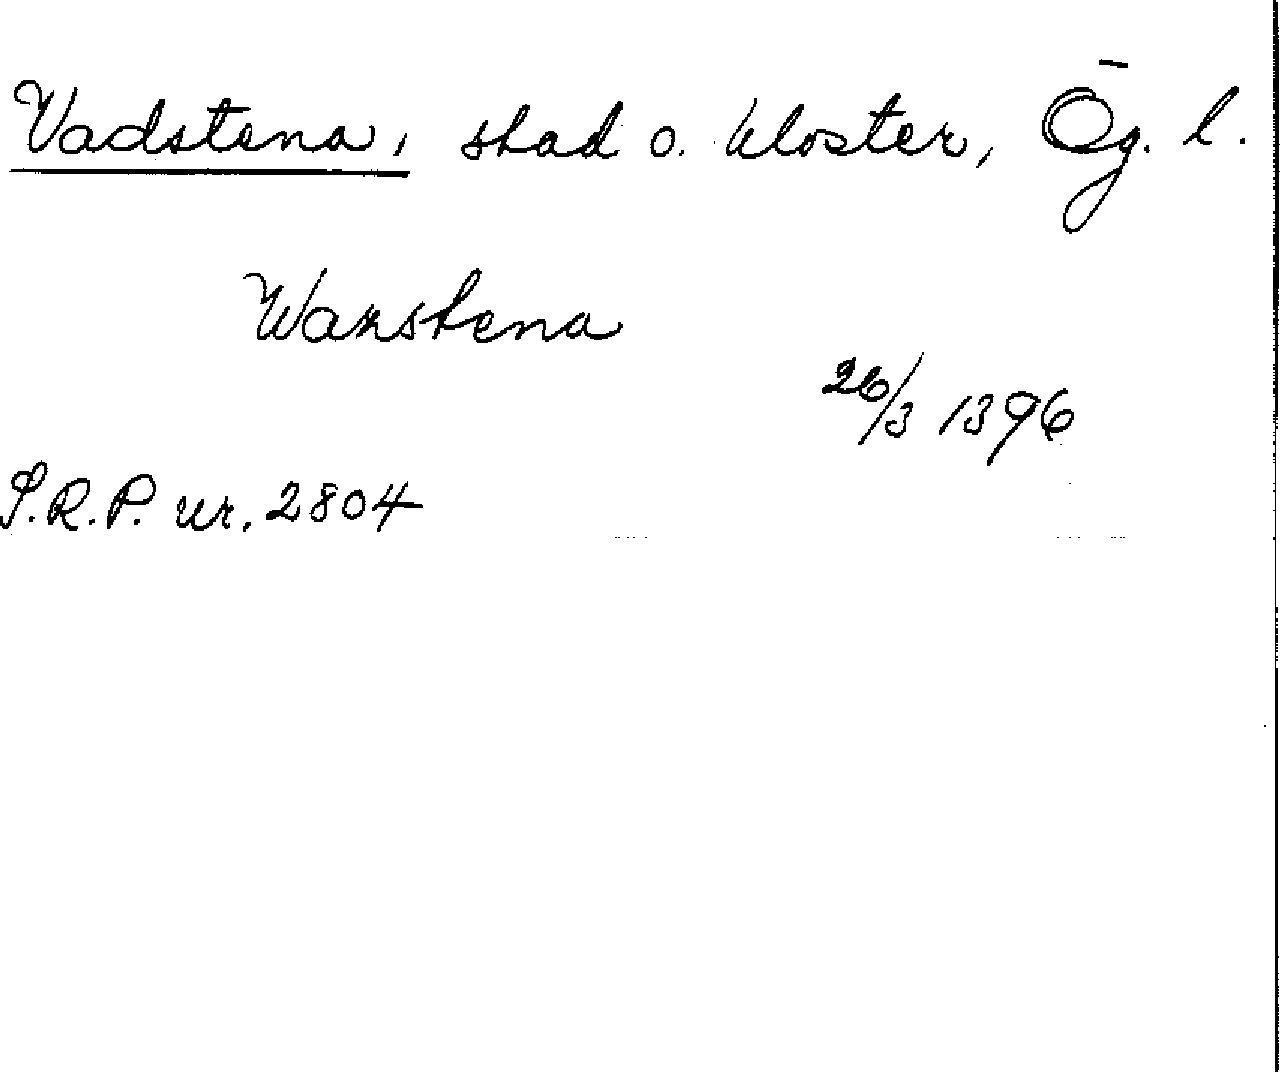 Vadstena, stad o. kloster, Ög. l.
Wazstena
26/3 1396
S.R.P. nr. 2804